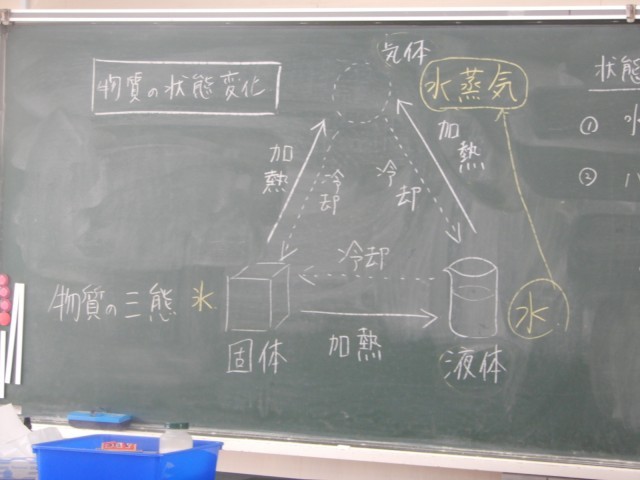 物質の状態変化
気体
水蒸気
状態
加熱
加熱
① 水
冷却
冷却
②
冷却
物質の三態
氷
水
加熱
固体
液体